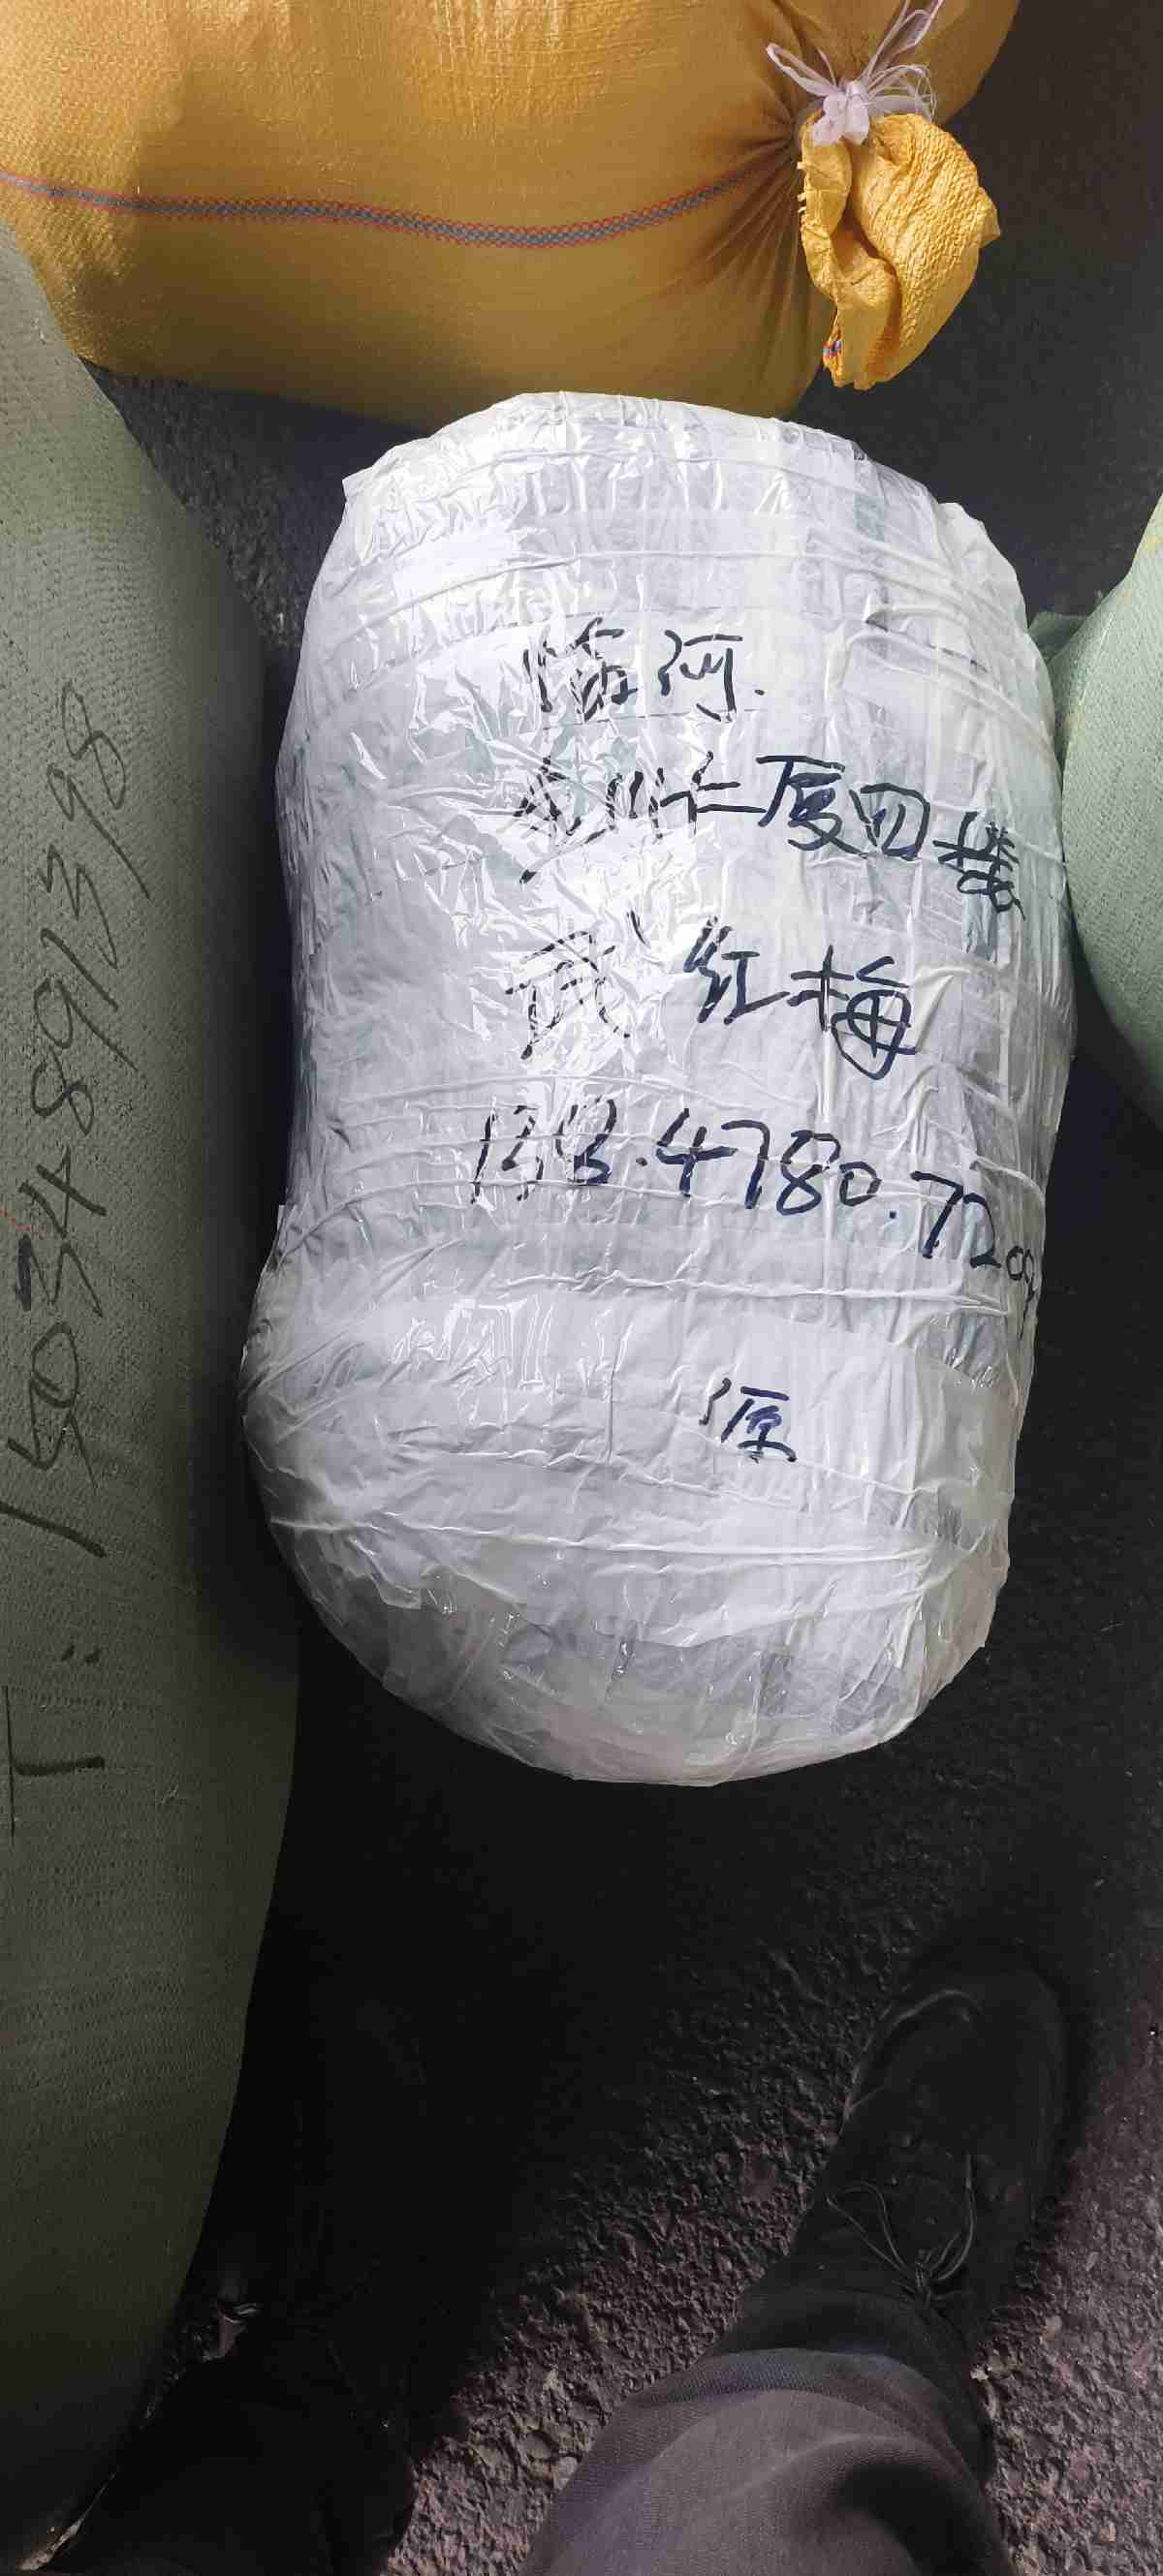 临河.
金川大厦四楼
武红梅
138.4780.7209
源
T:15034891398